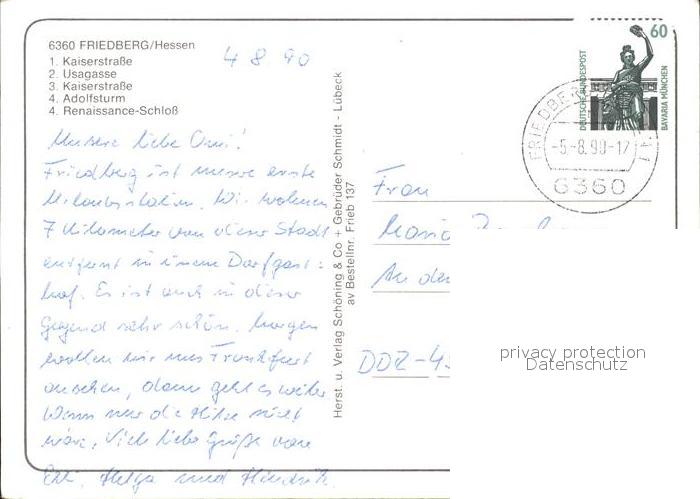 6360 FRIEDBERG/Hessen
1. Kaiserstraße
2. Usagasse
3. Kaiserstraße
4. Adolfsturm
4. Renaissance-Schloß
4 8 90
Unsere liebe Omi!
Friedberg ist unsere erste
Urlaubsstation. Wir wohnen
7 Kilometer von dieser Stadt
entfernt in einem Dorfgast=
hof. Es ist auch in dieser
Gegend sehr schön. Morgen
wollen wir uns Frankfurt
ansehen, dann geht es weiter
Wenn nur die Hitze nicht
wäre. Viele liebe Grüße von
Helga und
Herst. u. Verlag Schöning & Co + Gebrüder Schmidt - Lübeck
av Bestellnr. Frieb 137
60
DEUTSCHE BUNDESPOST
BAVARIA MÜNCHEN
FRIEDBERG
-5.-8.90-17
6360
Frau
An der
DDR-45
privacy protection
Datenschutz